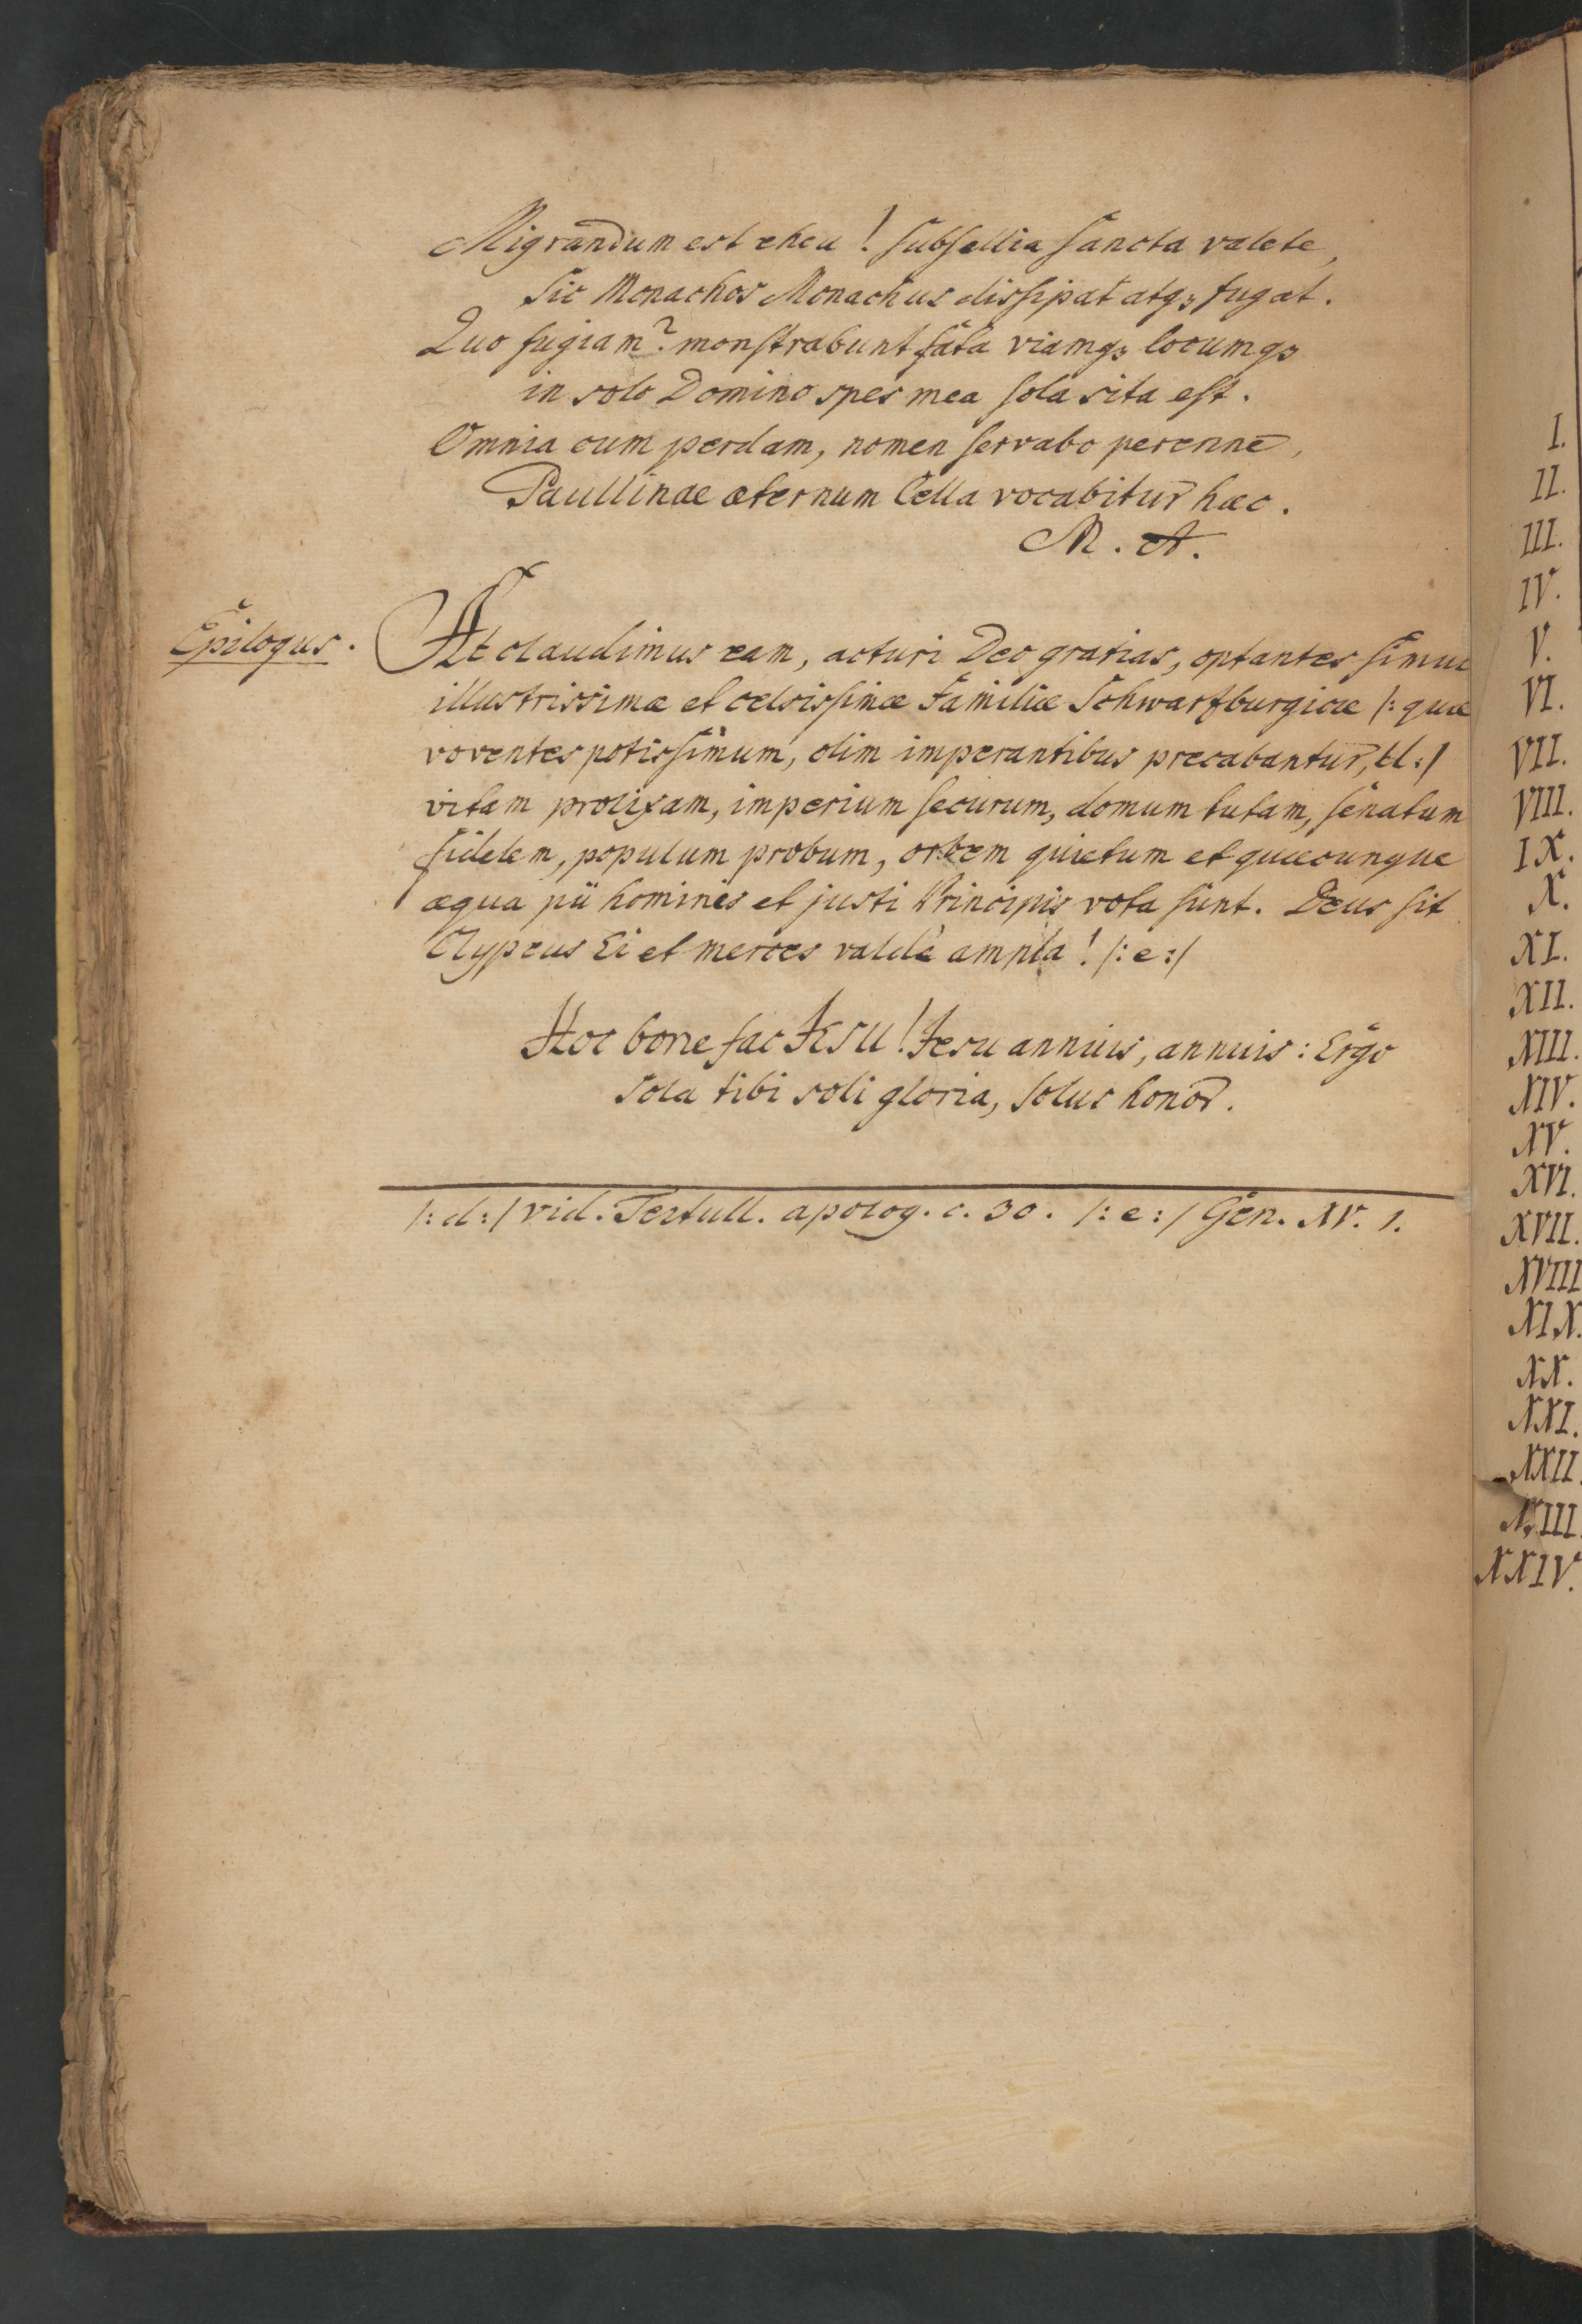 Migrandum est eheu! subsellia sancta valete,
Sic Monachos Monachus dissipat atqꝫ fugat.
Quo fugiam? monstrabunt fata viamqꝫ locumqꝫ
in solo Domino spes mea sola sita est.
Omnia cum perdam, nomen servabo perenne,
Paullinae æternum Cella vocabitur hæc.
M. A.
Epilogus.
At claudimus eam, acturi Deo gratias, optantes simul
illustrissimæ et celsissimæ Familiæ Schwartzburgicæ /: quæ
voventes potissimum, olim imperantibus precabantur, d :/
vitam prolixam, imperium securum, domum tutam, senatum
fidelem, populum probum, orbem quietum et quæcunque
æqua pii hominis et justi Principis vota sunt. Deus sit
Clypeus Ei et merces valdè ampla! /: e :/
Hoc bone fac JESU! Jesu annuis, annuis: Ergo
Sola tibi soli gloria, solus honor.
/: d :/ vid. Tertull. apolog. c. 30. /: e :/ Gen. XV. 1.
I.
II.
III.
IV.
V.
VI.
VII.
VIII.
IX.
X.
XI.
XII.
XIII.
XIV.
XV.
XVI.
XVII.
XVIII
XIX.
XX.
XXI.
XXII.
XXIII.
XXIV.